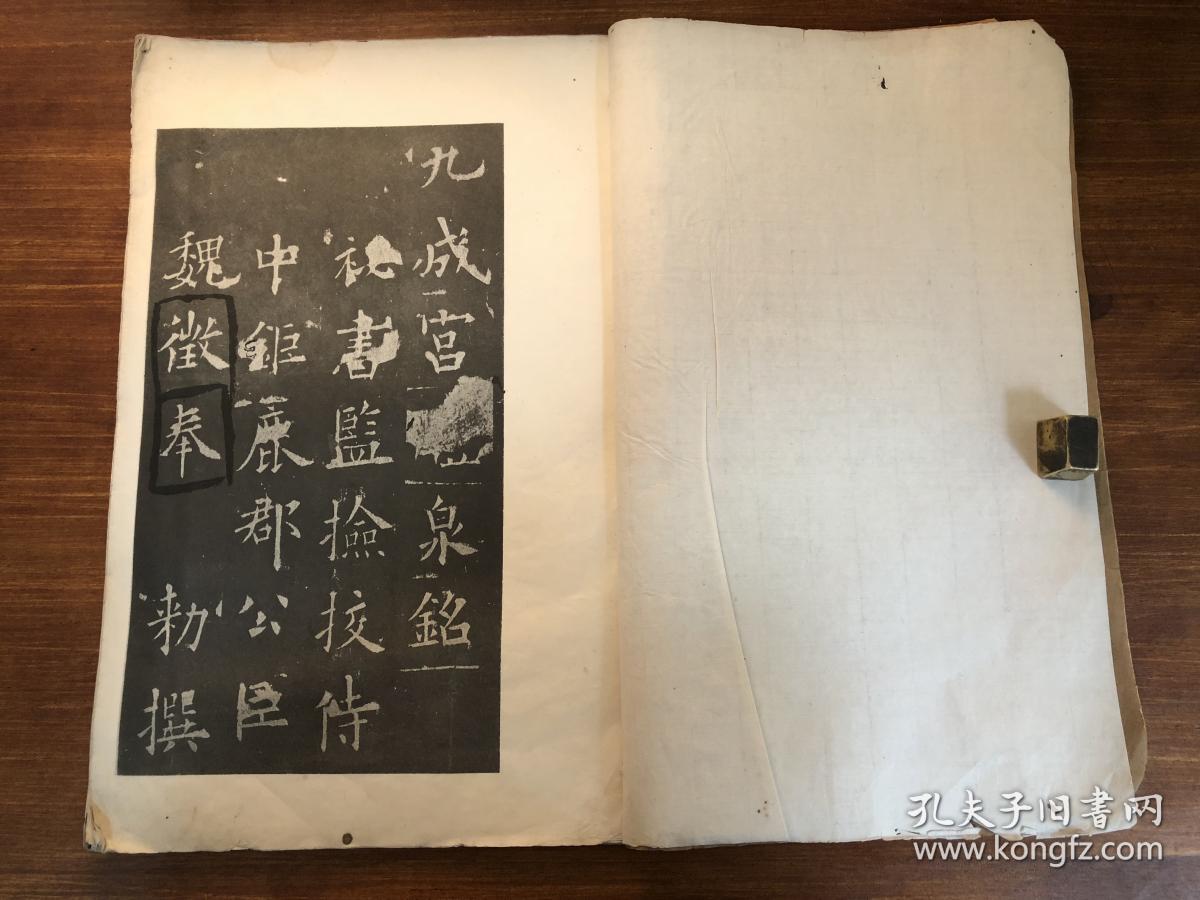 九成宮泉銘
祕書監撿挍侍
中鉅鹿郡公臣
魏徵奉
勑撰
孔夫子旧书网
www.kongfz.com